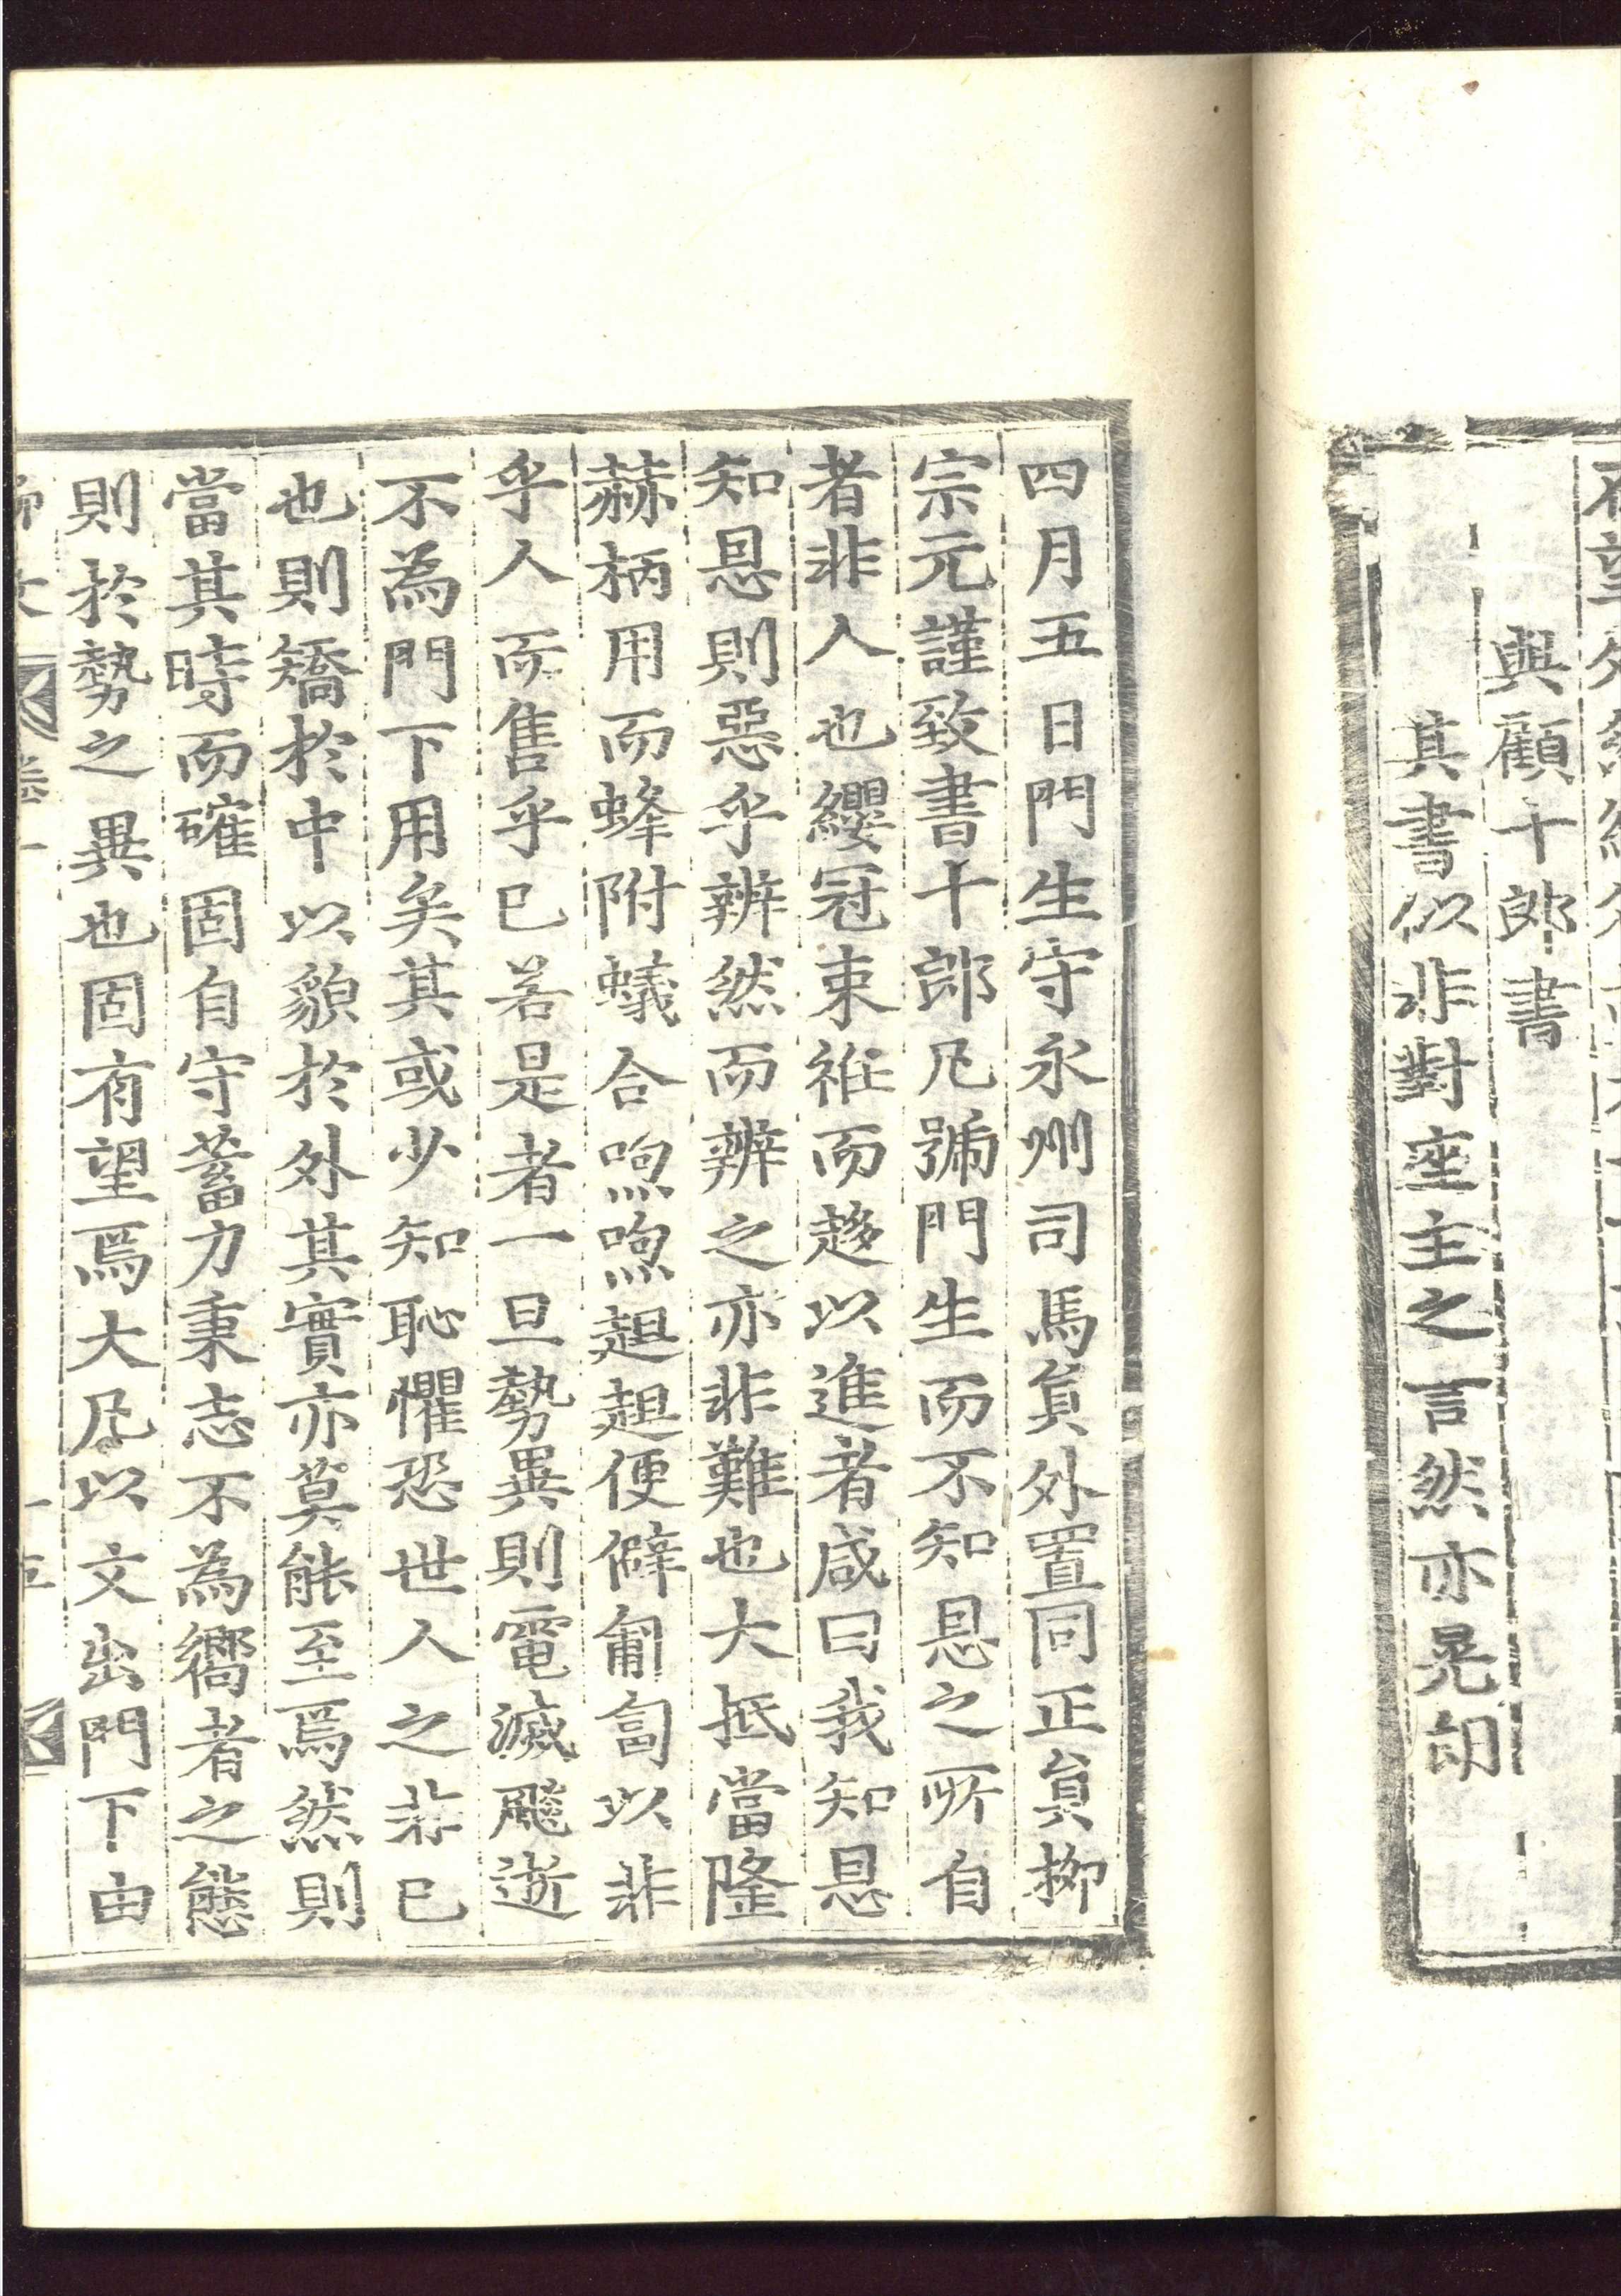 與顧十郎書
其書似非對座主之言然亦晃朗
四月五日門生守永州司馬貟外置同正貟柳
宗元謹致書十郎凡號門生而不知恩之所自
者非人也纓冠束袵而趍以進者咸曰我知恩
知恩則惡乎辨然而辨之亦非難也大抵當隆
赫柄用而蜂附蟻合喣喣趄趄便僻匍匐以非
乎人而售乎己若是者一旦勢異則電滅飈逝
不為門下用矣其或少知恥懼恐世人之非己
也則矯於中以貌於外其實亦莫能至焉然則
當其時而確固自守蓄力秉志不為嚮者之態
則於勢之異也固有望焉大凡以文出門下由